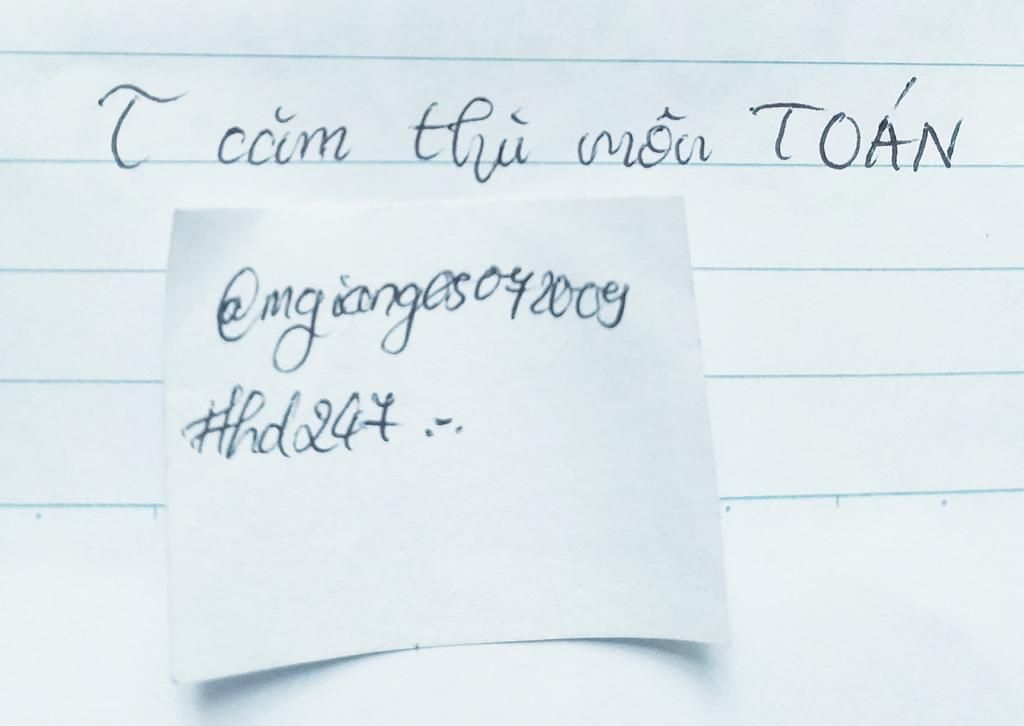 T căm thù môn TOÁN
@mgiang05072009
#hd247